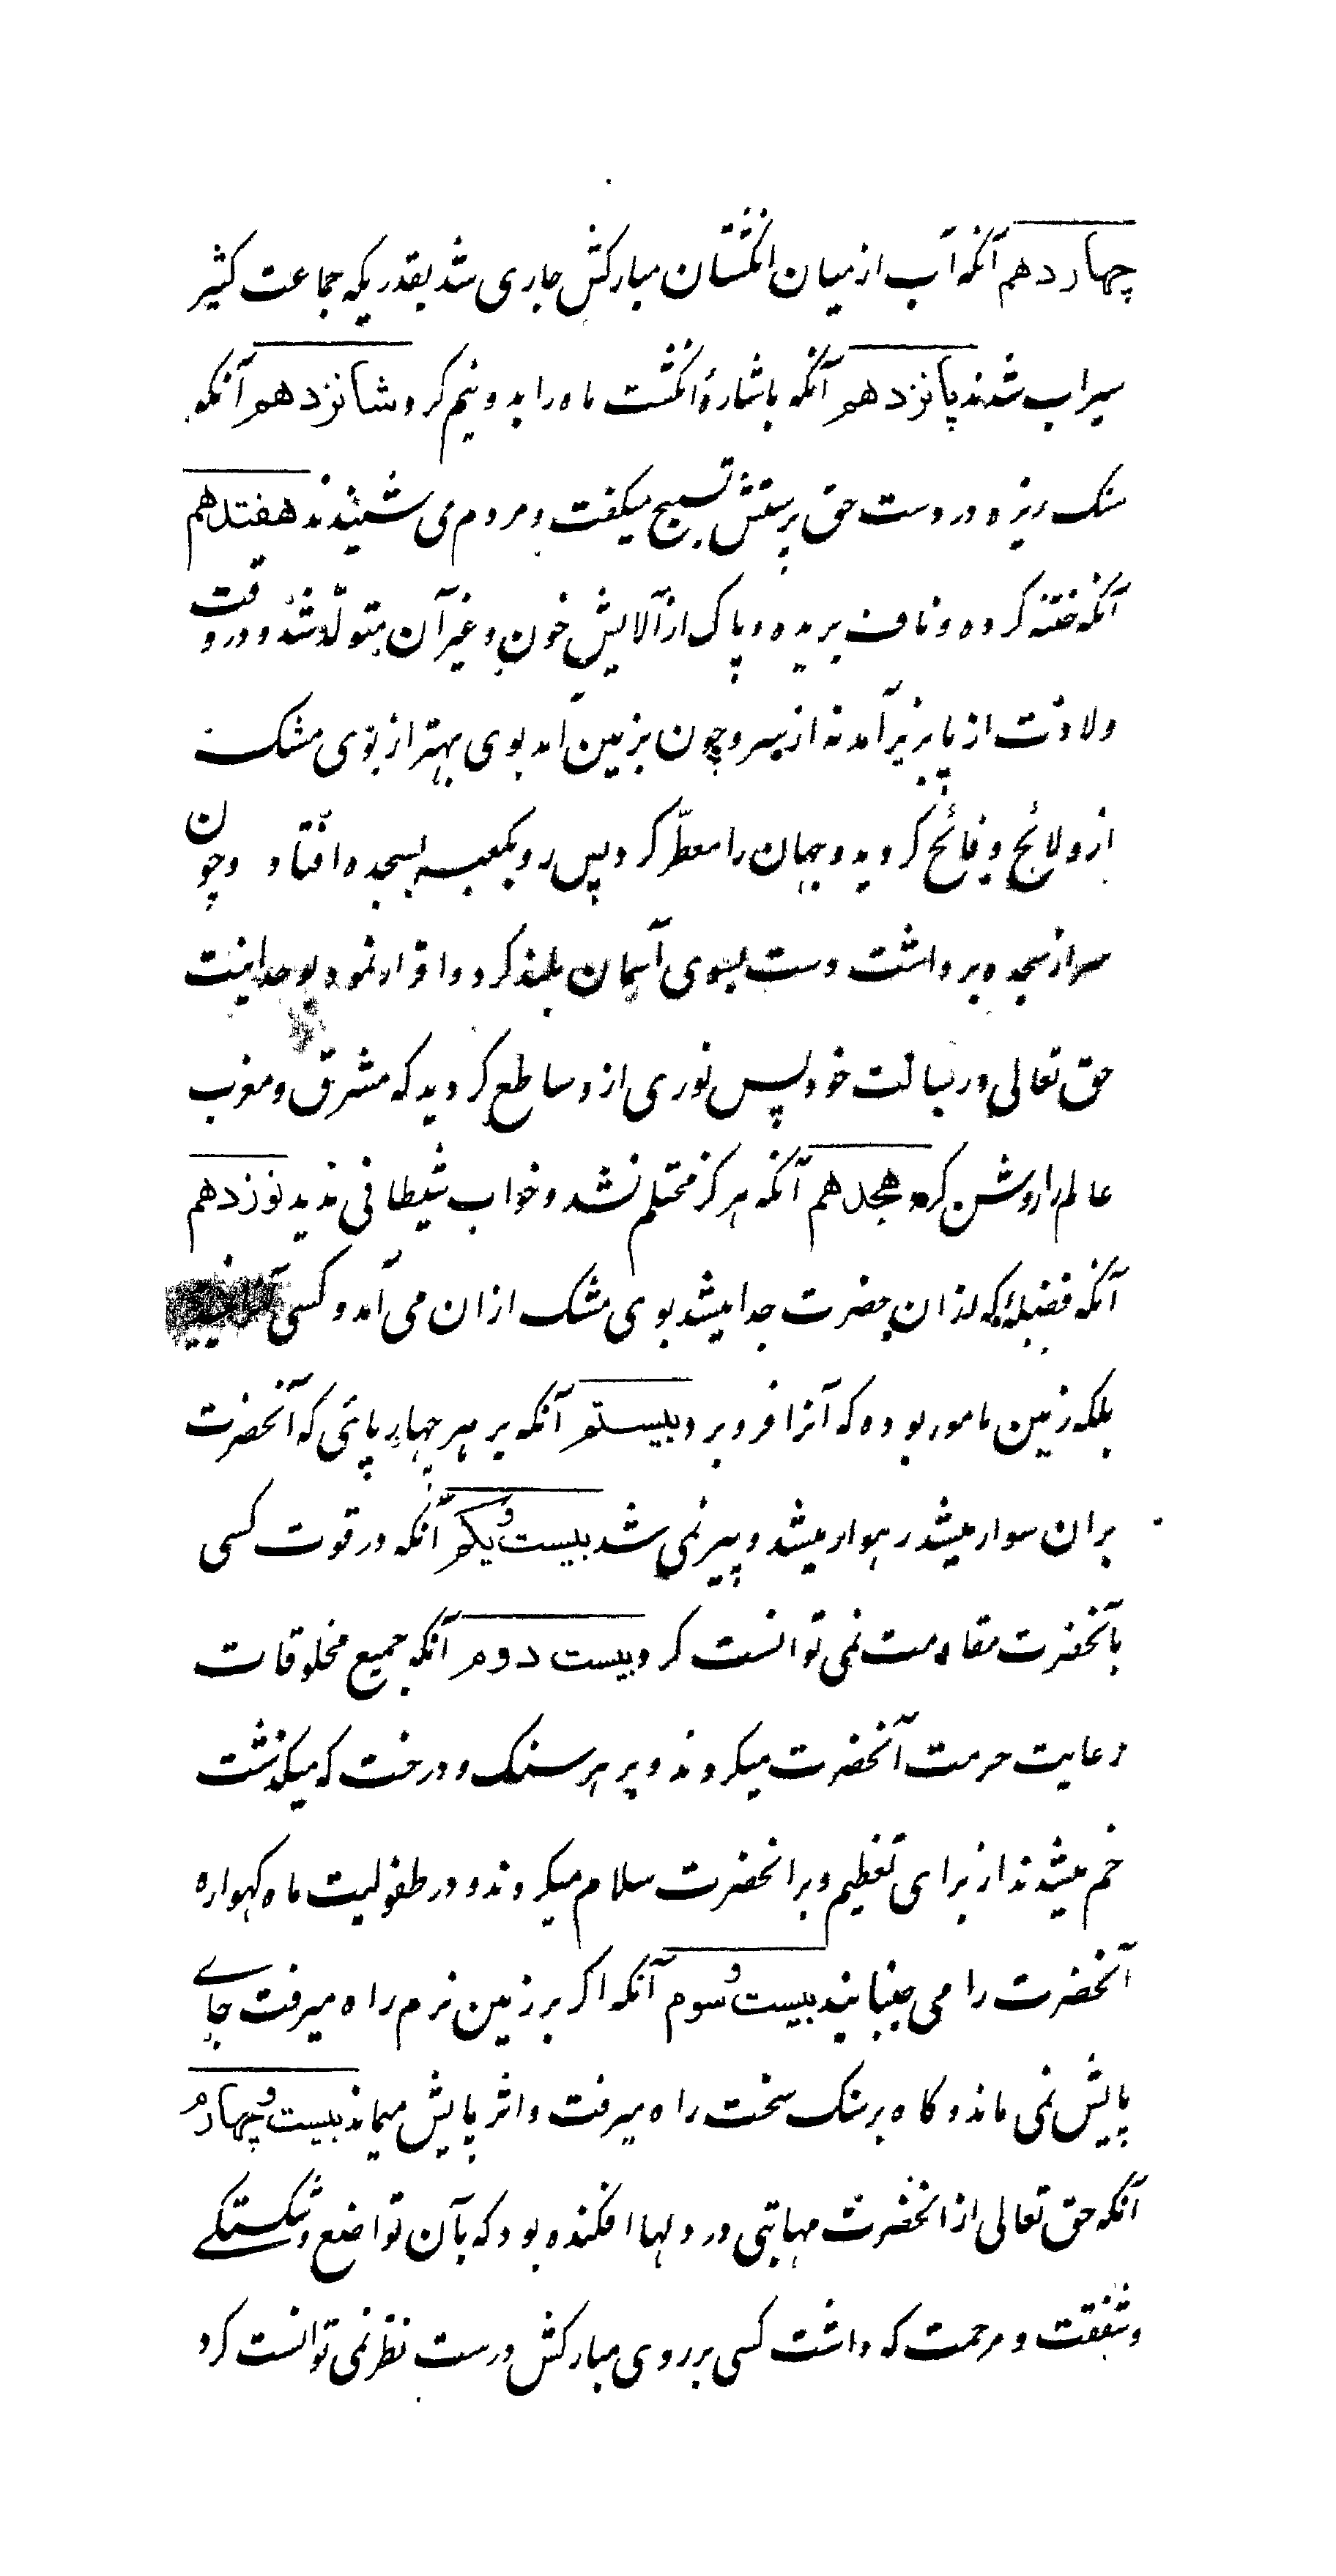 چهاردهم آنکه آب از میان انکشتان مبارکش جاری شد بقدریکه جماعت کثیر
سیراب شدند پانزدهم آنکه باشارهٔ انکشت ماه را بدو نیم کرد شانزدهم آنکه
سنک ریزه در دست حق پرستش تسبیح میکفت و مردم می شنیدند هفتدهم
آنکه ختنه کرده و ناف بریده و پاک از آلایش خون و غیر آن متولّد شد و در وقت
ولادت از پا بزیر آمد نه از سر و چون بزمین آمد بوی بهتر از بوی مشک
ازو لائح و فائح کردید و جهان را معطّر کرد پس رو بکعبه بسجده افتاد و چون
سر از سجده برداشت دست بسوی آسمان بلند کرد و اقرار نمود بوحدانیت
حق تعالی و رسالت خود پس نوری ازو ساطع کردید که مشرق و مغرب
عالم را روشن کرد هجدهم آنکه هرکز محتلم نشد و خواب شیطانی ندید نوزدهم
آنکه فضلهٔ که از ان حضرت جدا میشد بوی مشک ازان می آمد و کسی آنرا نمیدید
بلکه زمین مامور بوده که آنرا فرو برد بیستم آنکه بر هر چهار پائی که آنحضرت
بران سوار میشد رهوار میشد و پیر نمی شد بیست و یکم آنکه در قوت کسی
بآنحضرت مقاومت نمی توانست کرد بیست دوم آنکه جمیع مخلوقات
رعایت حرمت آنحضرت میکردند و بر هر سنک و درخت که میکذشت
خم میشدند از برای تعظیم و بر انحضرت سلام میکردند و در طفولیت ماه کهواره
آنحضرت را می جنبانید بیست و سوم آنکه اکر بر زمین نرم راه میرفت جای
پایش نمی ماند و کاه بر سنک سخت راه میرفت و اثر پایش میماند بیست و چهارم
آنکه حق تعالی از انحضرت مهابتی در دلها افکنده بود که بآن تواضع و شکستکی
و شفقت و مرحمت که داشت کسی بر روی مبارکش درست نظر نمی توانست کرد